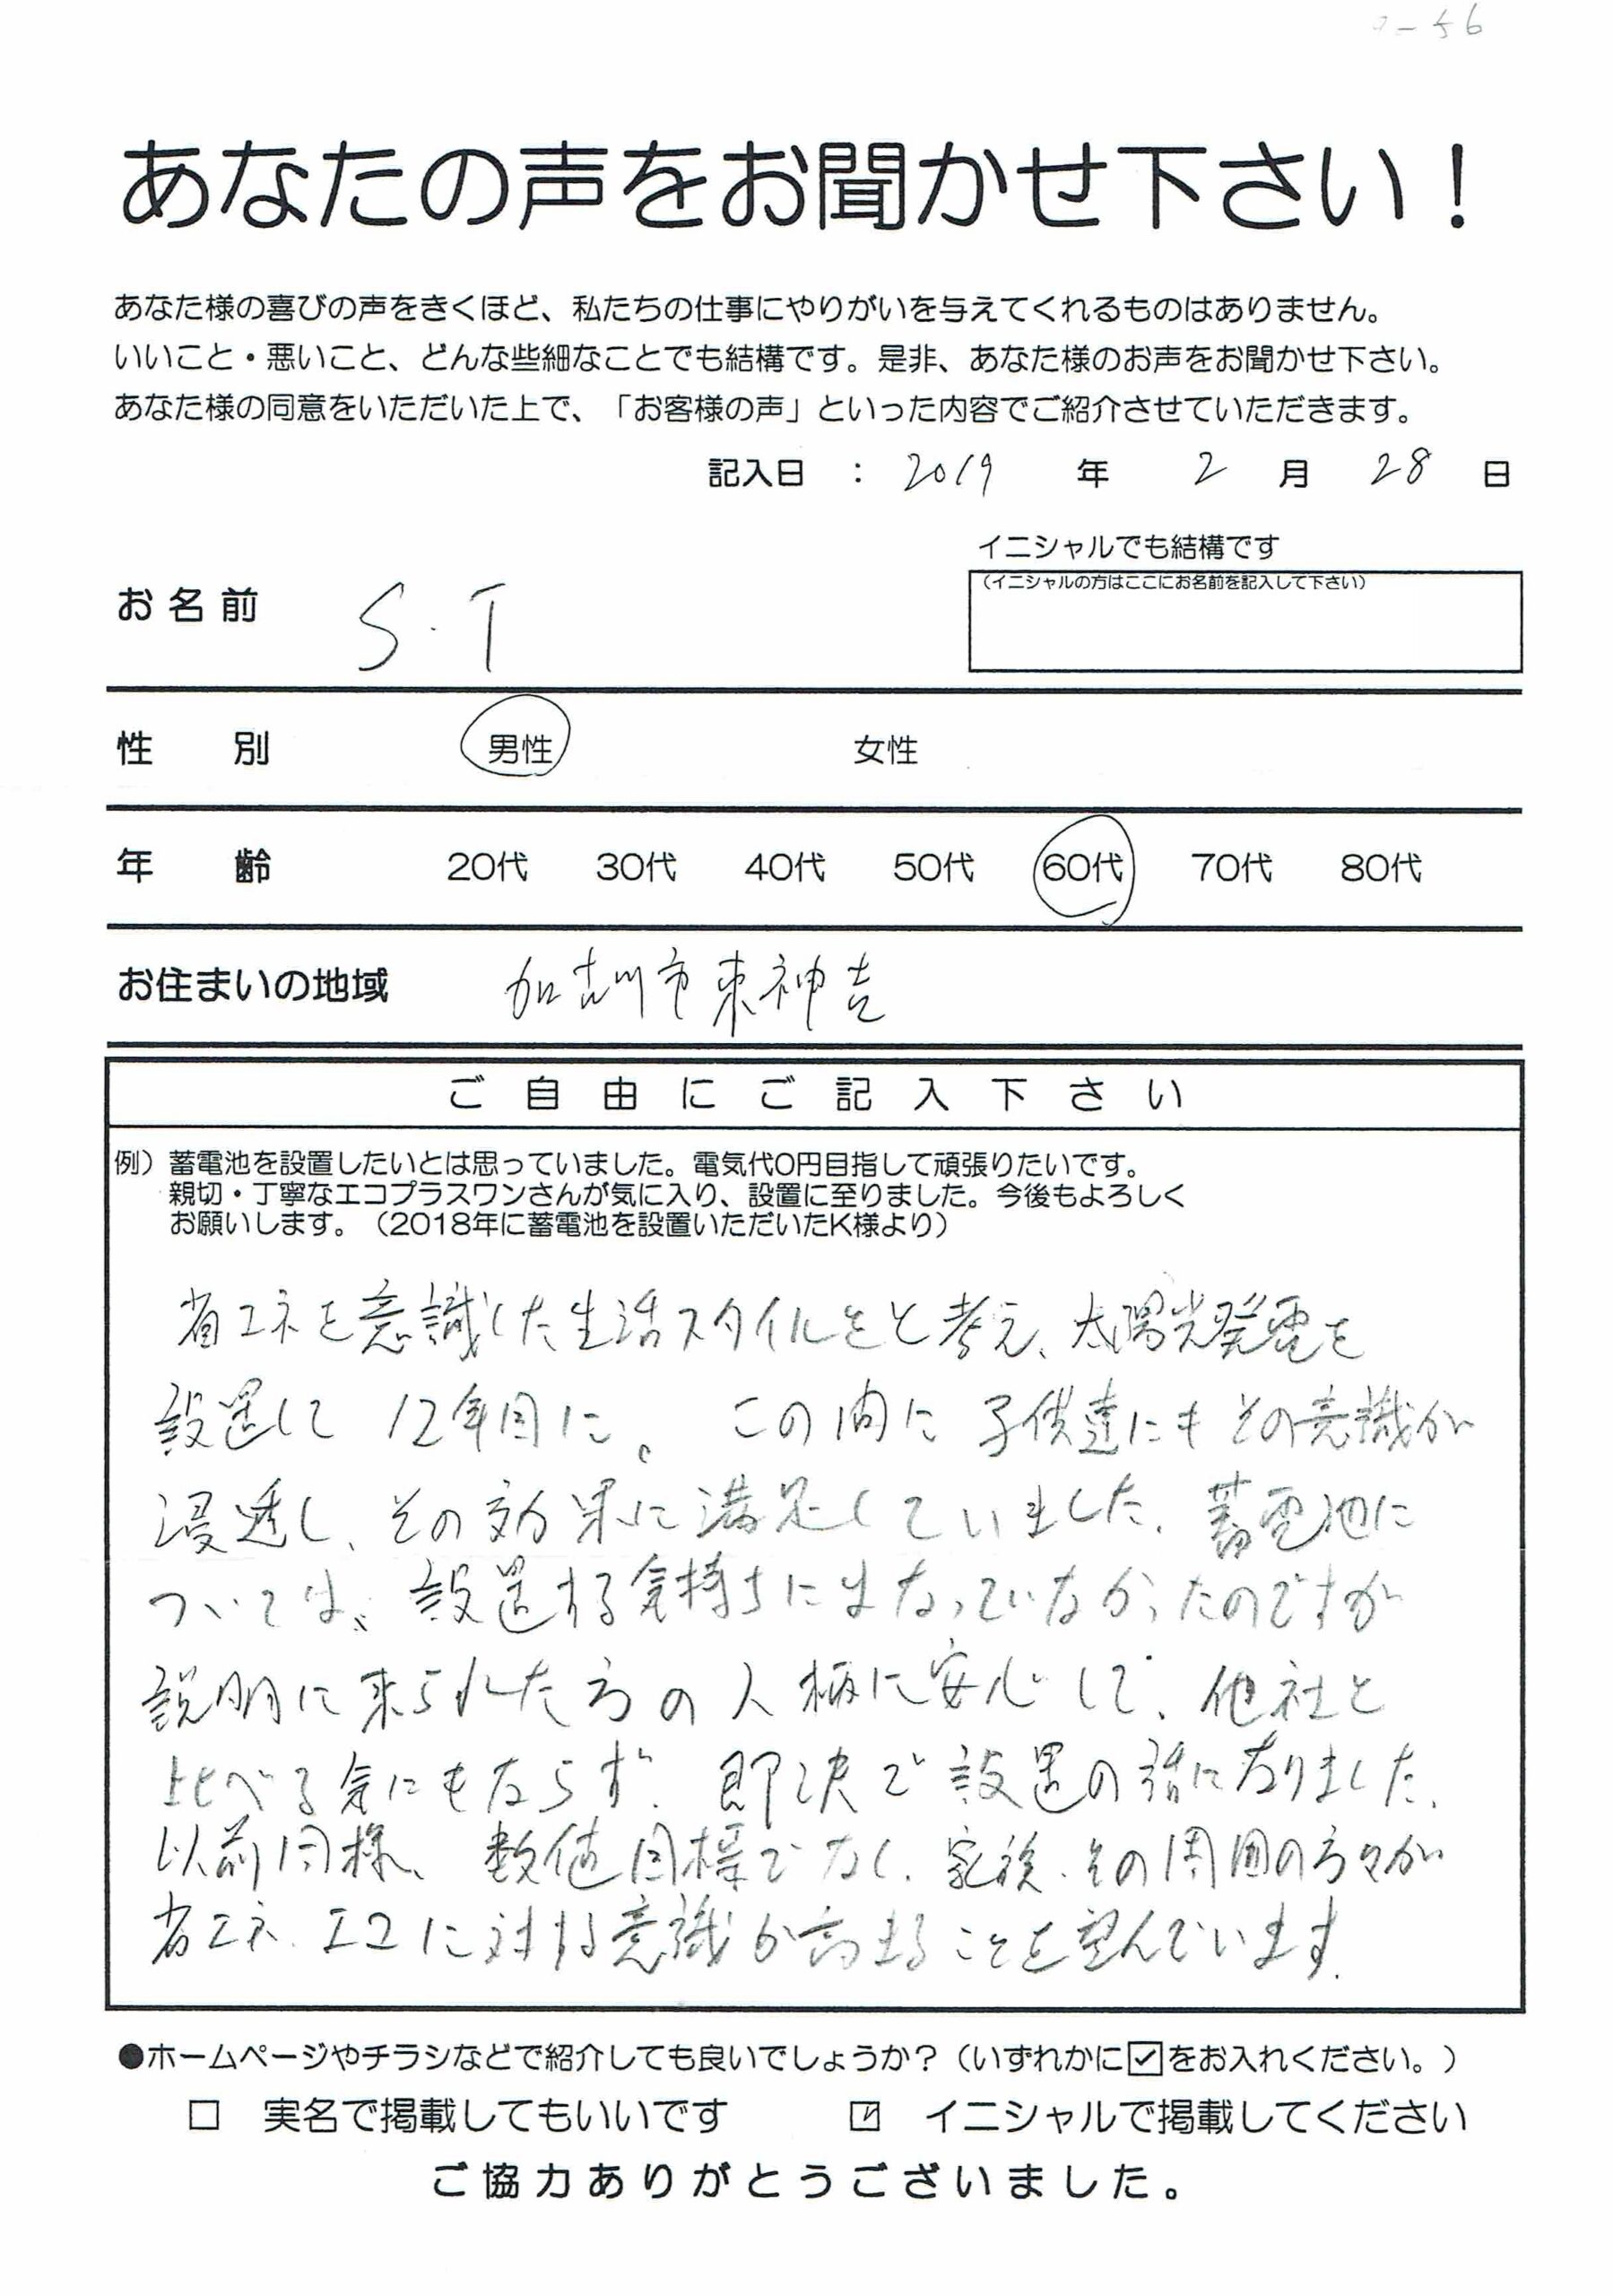 -56
あなたの声をお聞かせ下さい!
あなた様の喜びの声をきくほど、私たちの仕事にやりがいを与えてくれるものはありません。
いいこと・悪いこと、どんな些細なことでも結構です。是非、あなた様のお声をお聞かせ下さい。
あなた様の同意をいただいた上で、「お客様の声」といった内容でご紹介させていただきます。
記入日 : 2019 年 2 月 28 日
イニシャルでも結構です
(イニシャルの方はここにお名前を記入して下さい)
お名前 S・T
性別 男性 女性
年齢 20代 30代 40代 50代 60代 70代 80代
お住まいの地域 加古川市東神吉
ご自由にご記入下さい
例)蓄電池を設置したいとは思っていました。電気代0円目指して頑張りたいです。
親切・丁寧なエコプラスワンさんが気に入り、設置に至りました。今後もよろしく
お願いします。(2018年に蓄電池を設置いただいたK様より)
省エネを意識した生活スタイルをと考え、太陽光発電を
設置して 12年目に。この間に子供達にもその意識が
浸透し、その効果に満足していました。蓄電池に
ついては、設置する気持ちにはなっていなかったのですが
説明に来られた方の人柄に安心して、他社と
比べる気にもならず、即決で設置の話になりました。
以前同様、数値目標でなく、家族、その周囲の方々が
省エネ、エコに対する意識が高まることを望んでいます。
●ホームページやチラシなどで紹介しても良いでしょうか?(いずれかに☑をお入れください。)
□ 実名で掲載してもいいです ☑ イニシャルで掲載してください
ご協力ありがとうございました。